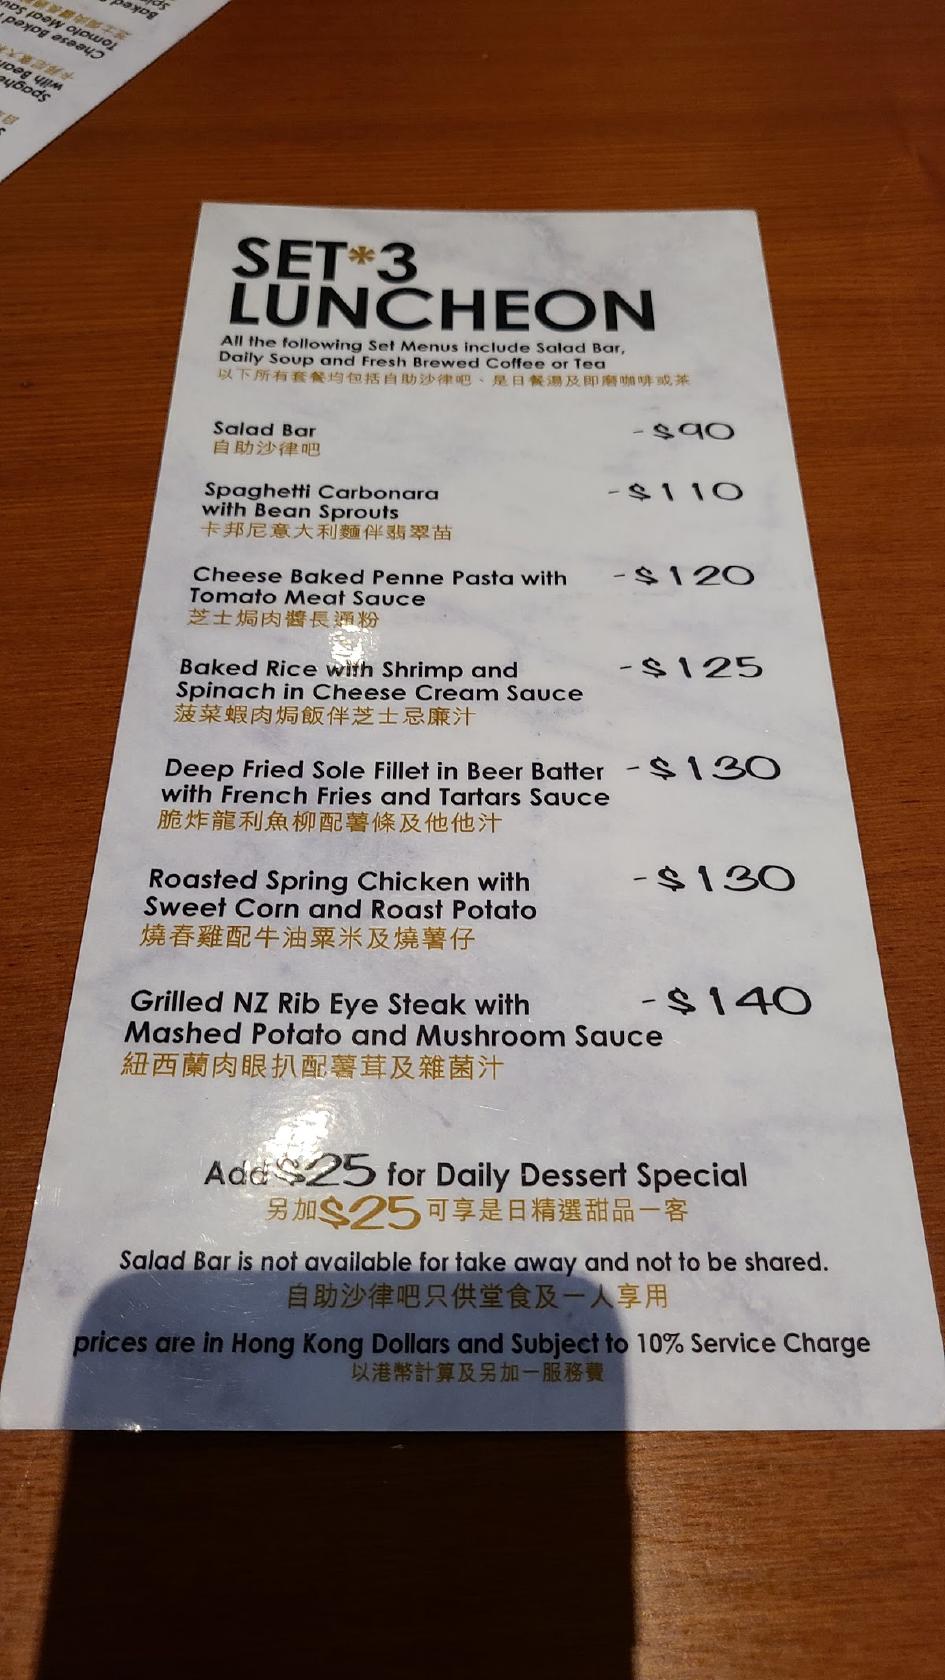 SET*3
LUNCHEON
All the following Set Menus include Salad Bar,
Daily Soup and Fresh Brewed Coffee or Tea
以下所有套餐均包括自助沙律吧、是日餐湯及即磨咖啡或茶
Salad Bar -$90
自助沙律吧
Spaghetti Carbonara -$110
with Bean Sprouts
卡邦尼意大利麵伴翡翠苗
Cheese Baked Penne Pasta with -$120
Tomato Meat Sauce
芝士焗肉醬長通粉
Baked Rice with Shrimp and -$125
Spinach in Cheese Cream Sauce
菠菜蝦肉焗飯伴芝士忌廉汁
Deep Fried Sole Fillet in Beer Batter -$130
with French Fries and Tartars Sauce
脆炸龍利魚柳配薯條及他他汁
Roasted Spring Chicken with -$130
Sweet Corn and Roast Potato
燒春雞配牛油粟米及燒薯仔
Grilled NZ Rib Eye Steak with -$140
Mashed Potato and Mushroom Sauce
紐西蘭肉眼扒配薯茸及雜菌汁
Add $25 for Daily Dessert Special
另加$25可享是日精選甜品一客
Salad Bar is not available for take away and not to be shared.
自助沙律吧只供堂食及一人享用
prices are in Hong Kong Dollars and Subject to 10% Service Charge
以港幣計算及另加一服務費